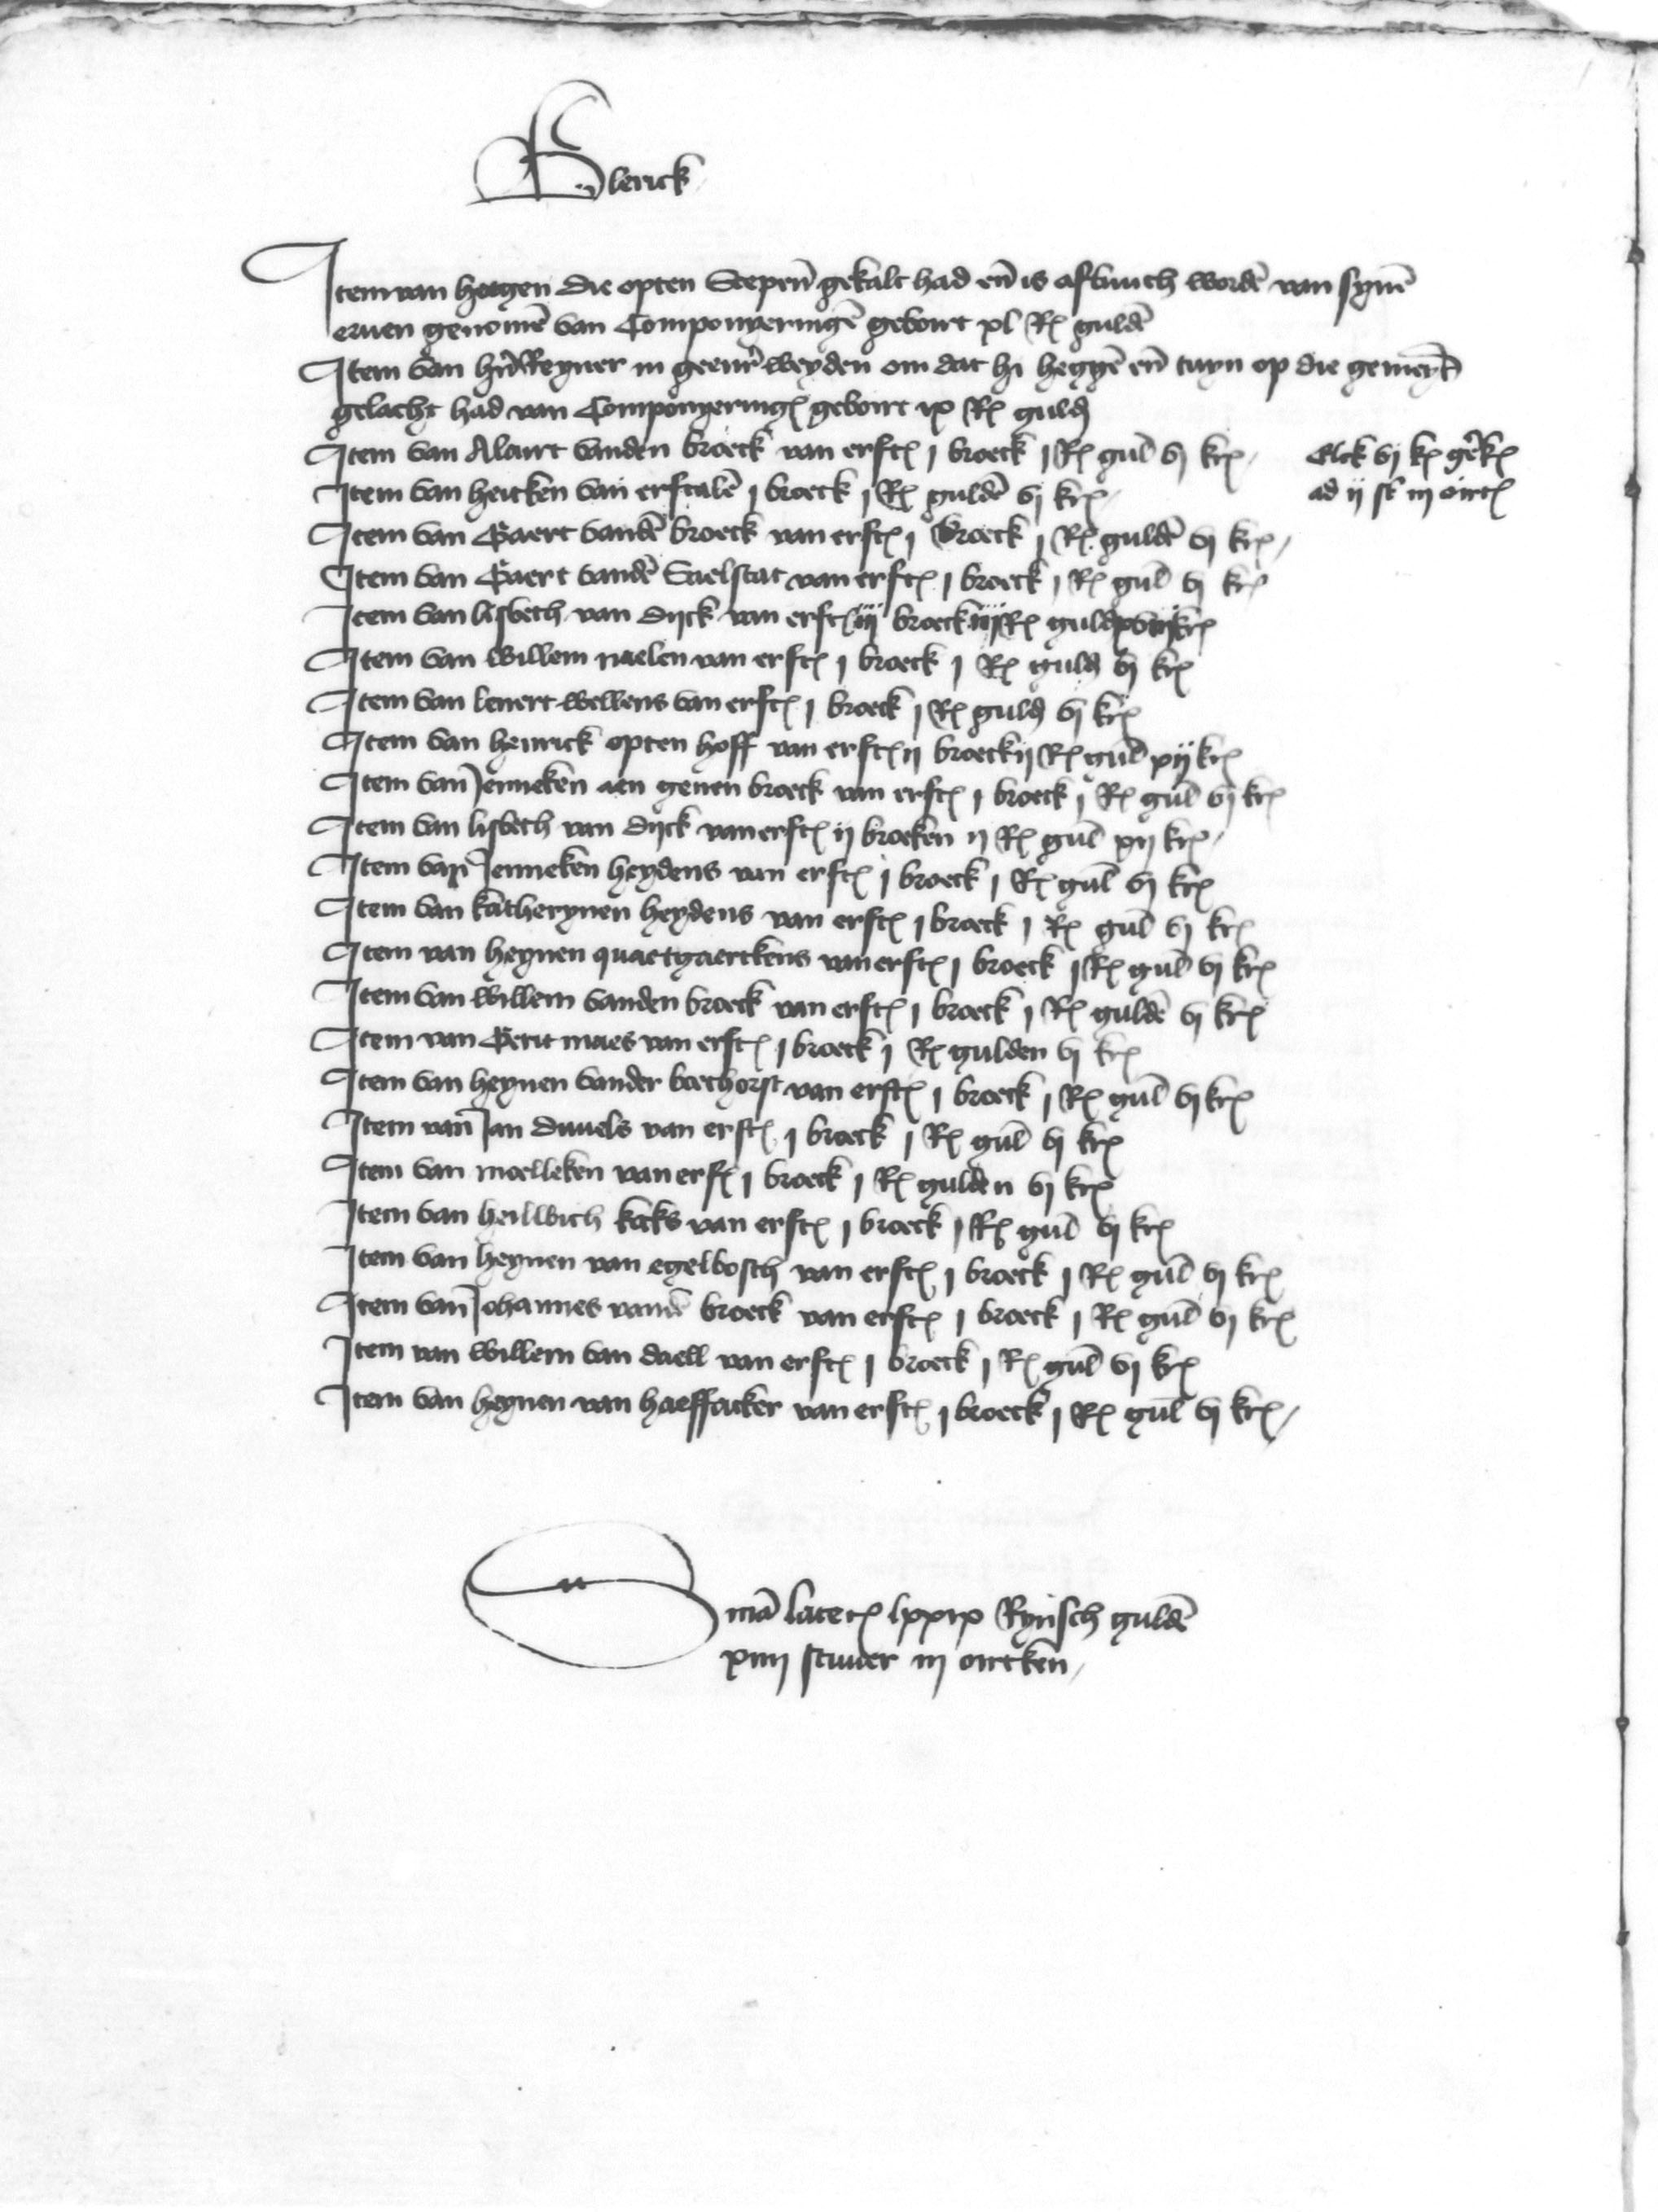 Blerick
Item van hoegen die opten Stepen̄ gekalt had en̄ is afbuuich wordē van synē
eruen genomē van Componyeringē geboirt xl R guldē
Item van hr̄n Reyner in geenr̄ weyden om dat hi heggē en̄ tuyn op die gemeyt
gelacht had van Componyering geboirt ix R guld
Item van Alaert vanden broeck van erft j broeck j R gul̄ vj kr
Elck vj k gēk
ad ij st iij oirt
Item van heicken van erftalē j broeck j R guldē vj kr
Item van Gaert vandē broeck van erft j broeck j R guldē vj kr
Item van Gaert vandē Saelstat van erft j broeck j R gul̄ vj kr
Item van lisbeth van dijck van erft iij broeck iij R guld xviij kr
Item van willem naelen van erft j broeck j R guld vj kr
Item van lenert wellens van erft j broeck j R guld vj kr
Item van henrick opten hoff van erft ij broeck ij R gul̄ xij kr
Item van Jenneken aen genen broeck van erft j broeck j R gul̄ vj kr
Item van lisbeth van dijck van erft ij broeken ij R gul̄ xij kr
Item van Jenneken heydens van erft j broeck j R gul̄ vj kr
Item van katherynen heydens van erft j broeck j R gul̄ vj kr
Item van heynen quaetgaerckens van erft j broeck j R gul̄ vj kr
Item van willem vanden broeck van erft j broeck j R guldē vj kr
Item van Gerit maes van erft j broeck j R gulden vj kr
Item van heynen vander boethorst van erft j broeck j R gul̄ vj kr
Item van Jan duuels van erft j broeck j R gul̄ vj kr
Item van moelleken van erf j broeck j R gulden vj kr
Item van heilwich keks van erft j broeck j R gul̄ vj kr
Item van heynen van egelbosch van erft j broeck j R gul̄ vj kr
Item van Johannes vandē broeck van erft j broeck j R gul̄ vj kr
Item van willem van daell van erft j broeck j R gul̄ vj kr
Item van heynen van haeffacker van erft j broeck j R gul̄ vj kr
Sum̄a later lxxix Rynsch guldē
xiiij stuuer iij oirtken